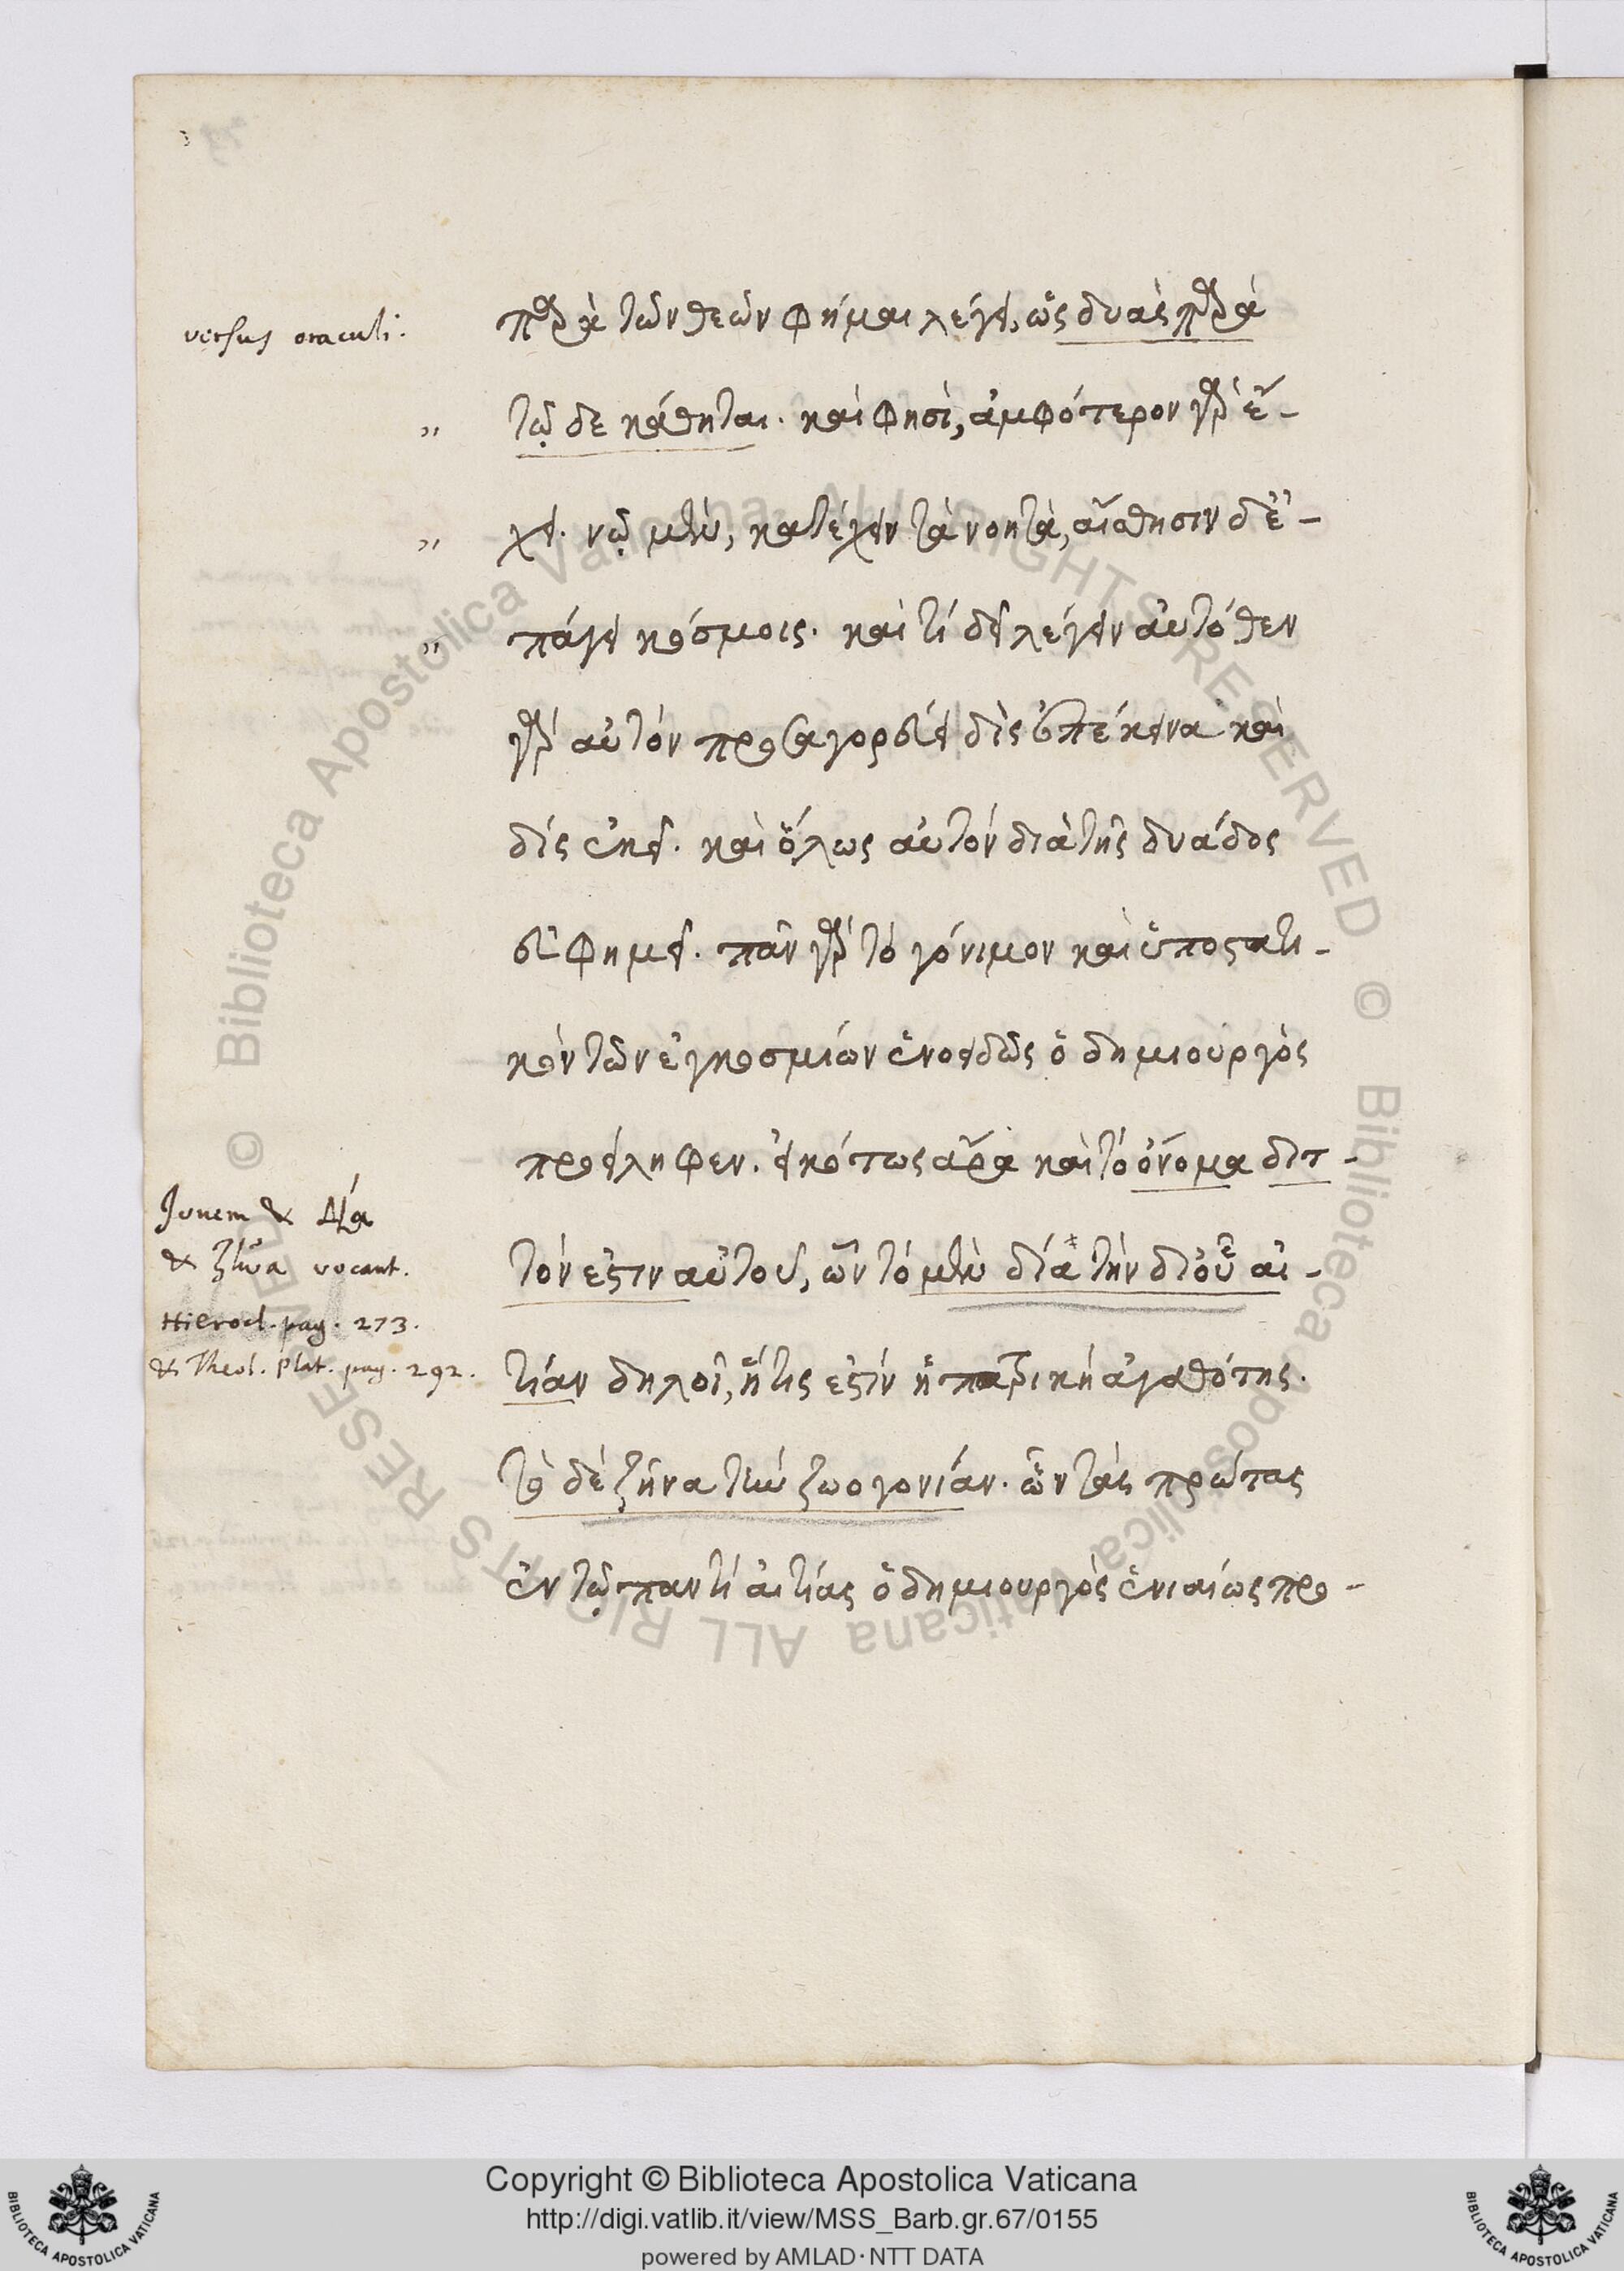 versus oraculi.
παρὰ τῶν θεῶν φήμαι λέγει, ὡς δυὰς παρὰ
„ τῷ δε κάθηται. καὶ φησὶ, ἀμφότερον γὰρ ἔ-
„ χει. νῷ μὲν, κατέχειν τὰ νοητὰ, αἴσθησιν δ' ἐ-
„ πάγει κόσμοις. καὶ τί δεῖ λέγειν αὐτόθεν
γὰρ αὐτὸν προσαγορεύει δὶς ἐπέκεινα καὶ
δίς ἐκεῖ. καὶ ὅλως αὐτόν διὰ τῆς δυάδος
εὐφημεῖ. πᾶν γὰρ τὸ γόνιμον καὶ ὑποστατι-
κὸν τῶν ἐγκοσμίων ἑνοειδῶς ὁ δημιουργὸς
προείληφεν. εἰκότως ἄρα καὶ τὸ ὄνομα διτ-
Jovem & Δία
& Ζῆνα vocant.
Hierocl. pag. 273.
& Theol. Plat. pag. 292.
τόν ἐστιν αὐτοῦ, ὧν τὸ μὲν δία τὴν δι' οὗ αἰ-
τίαν δηλοῖ, ἥτις ἐστίν ἡ πατρικὴ ἀγαθότης.
τὸ δὲ ζῆνα τὴν ζωογονίαν. ὧν τὰς πρώτας
ἐν τῷ παντὶ αἰτίας ὁ δημιουργός ἑνιαίως προ-
© Biblioteca Apostolica Vaticana ALL RIGHTS RESERVED
© Biblioteca Apostolica Vaticana ALL RIGHTS RESERVED
Copyright © Biblioteca Apostolica Vaticana
http://digi.vatlib.it/view/MSS_Barb.gr.67/0155
powered by AMLAD·NTT DATA
BIBLIOTECA APOSTOLICA VATICANA
BIBLIOTECA APOSTOLICA VATICANA